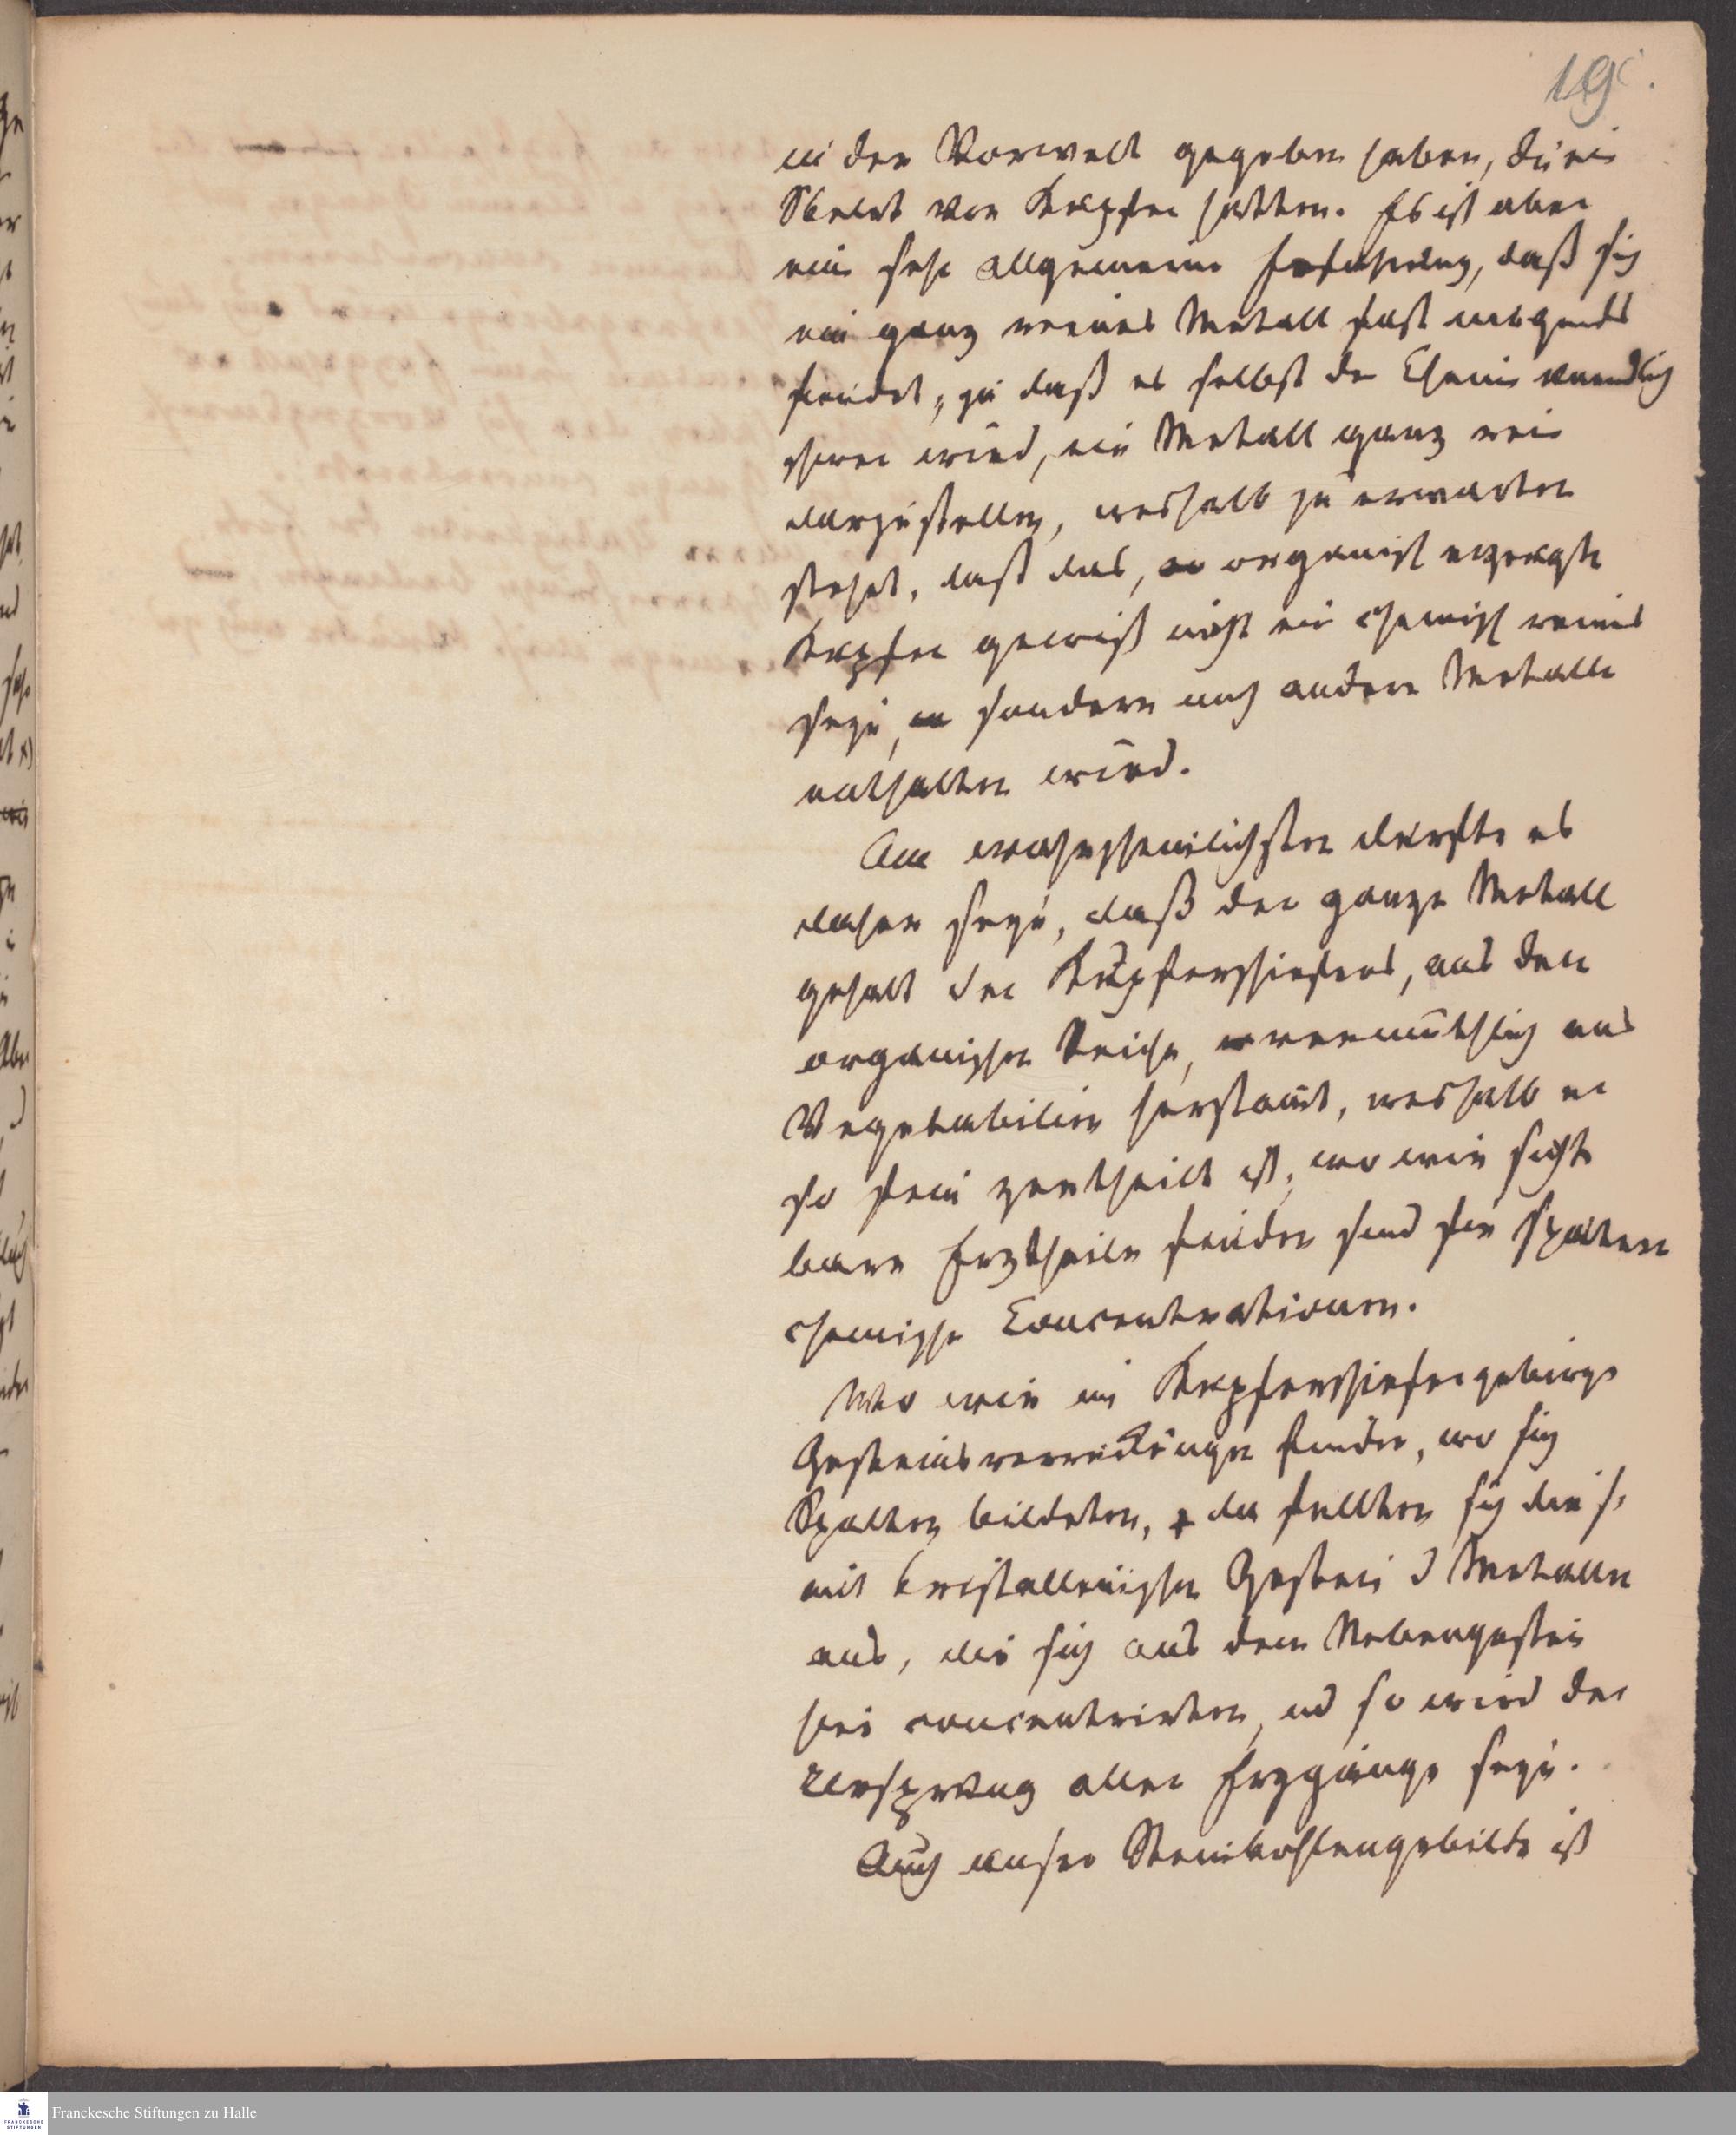 19.
in der Vorwelt gegeben haben, die ein
Skelet von Kupfer hatten. Es ist aber
eine sehr allgemeine Erfahrung, daß sich
ein ganz reines Metall fast nirgends
findet, ja daß es selbst der Chemie unendlich
schwer wird, ein Metall ganz rein
darzustellen, weshalb zu erwarten
stehet, daß das, organisch erzeugte
Kupfer gewiß nicht ein chemisch reines
seyn, sondern auch andere Metalle
enthalten wird.
Am wahrscheinlichsten dürfte es
daher seyn, daß der ganze Metall
gehalt des Kupferschiefers, aus dem
organischen Reiche, vermuthlich aus
Vegetabilien herstamt, weshalb er
so fein zertheilt ist, wo wir sicht
bare Erztheile finden sind sie spätere
chemische Concentrationen.
Wo wir im Kupferschiefergebirge
Gesteinsverrückungen finden, wo sich
Spalten bildeten, da füllten sich diese
mit kristallinischen Gestein u Metallen
aus, die sich aus dem Nebengestein
hier concentrirten, und so wird der
Ursprung aller Erzgänge seyn.
Auch unser Steinkohlengebilde ist
Franckesche Stiftungen zu Halle